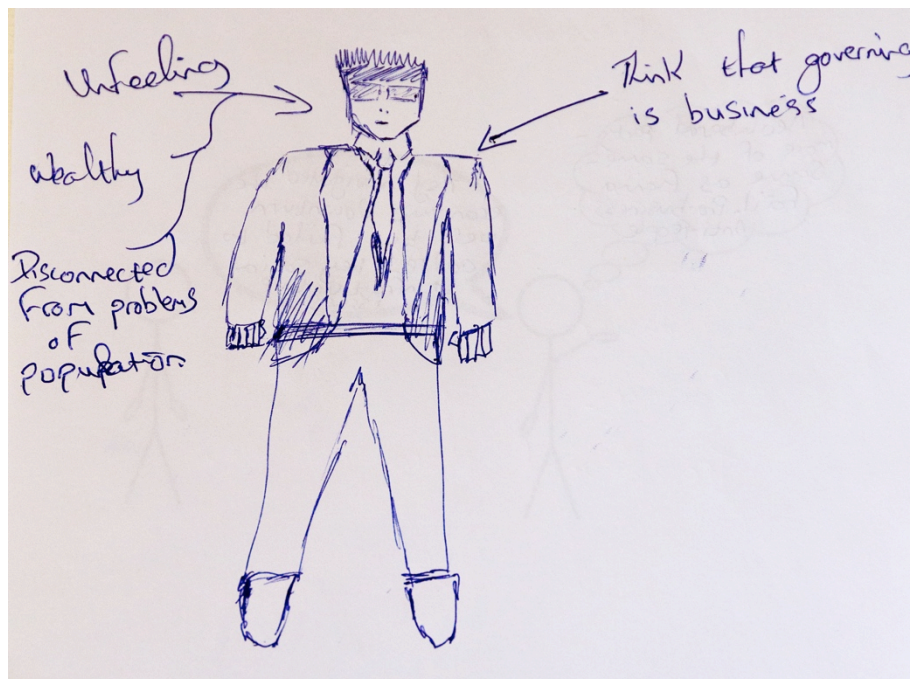 Unfeeling
Wealthy
Disconnected
from problems
of
population
Think that governing
is business